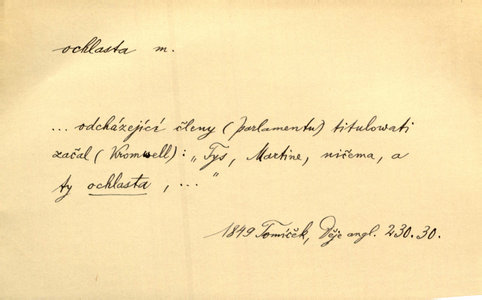 ochlasta m.
... odcházející členy (parlamentu) titulovati
začal (Kromwell): „Tys, Martine, ničema, a
ty ochlasta, ..."
1849 Tomíček, Děje angl. 230.30.